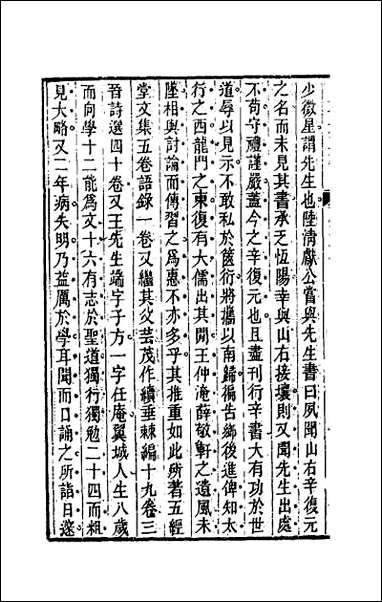 少微星謂先生也陸清獻公嘗與先生書曰夙聞山右辛復元
之名而未見其書承乏恆陽幸與山右接壤則又聞先生出處
不苟守禮謹嚴蓋今之辛復元也且盡刊行辛書大有功於世
道辱以見示不敢私於篋衍將攜以南歸徧告鄉後進俾知太
行之西龍門之東復有大儒出其間王仲淹薛敬軒之遺風未
墜相與討論而傳習之爲惠不亦多乎其推重如此所著五經
堂文集五卷語錄一卷又繼其父芸茂作續垂棘編十九卷三
晉詩選四十卷又王先生端字子方一字任庵翼城人生八歲
而向學十二能爲文十六有志於聖道獨行獨勉二十四而粗
見大略又二年病失明乃益厲於學耳聞而口誦之所詣日邃